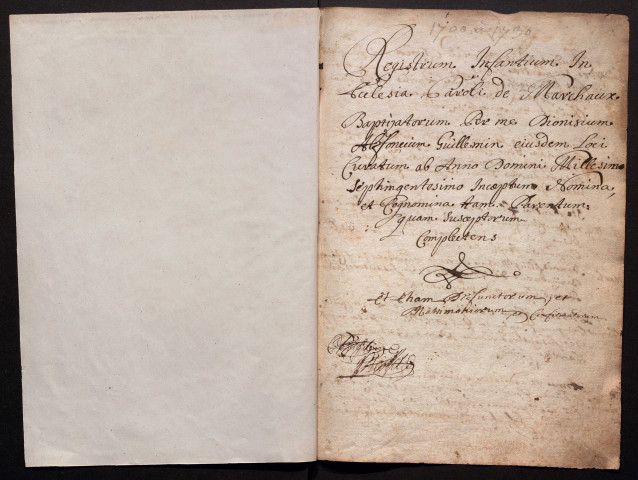 Registrum Infantium In
Ecclesia Caroli de Marchaux
Baptizatorum Per me Dionisium
Guillemin eiusdem Loci
Curatum ab Anno Domini Millesimo
Septingentesimo Inceptum Nomina,
et Cognomina tam Parentum,
quam Susceptorum
Complectens
et etiam Defunctorum, et
Matrimoniorum